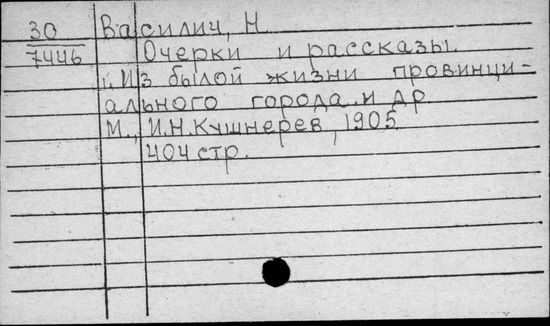 30 Василич, Н.
7446 Очерки и рассказы.
1. Из былой жизни провинци-
ального города. и др
М., И.Н.Кушнерев, 1905
404 стр.